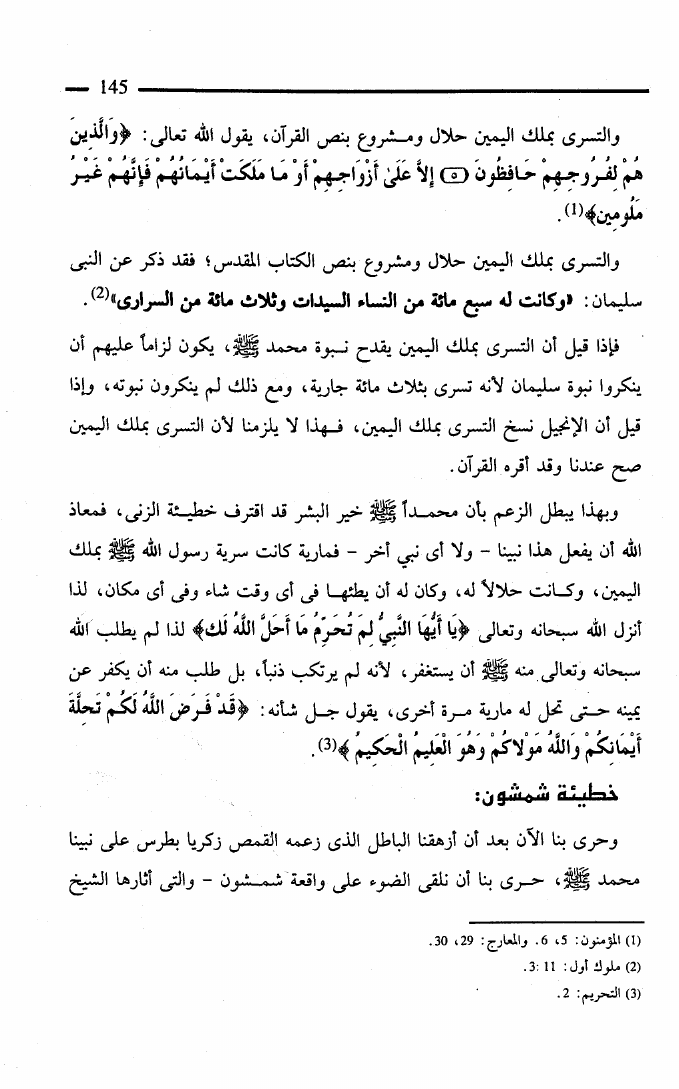 145
والتسرى بملك اليمين حلال ومشروع بنص القرآن، يقول الله تعالى: ﴿وَالَّذِينَ
هُمْ لِفُرُوجِهِمْ حَافِظُونَ ⑤ إِلاَّ عَلَىٰ أَزْوَاجِهِمْ أَوْ مَا مَلَكَتْ أَيْمَانُهُمْ فَإِنَّهُمْ غَيْرُ
مَلُومِينَ﴾(1).
والتسرى بملك اليمين حلال ومشروع بنص الكتاب المقدس؛ فقد ذكر عن النبى
سليمان: «وكانت له سبع مائة من النساء السيدات وثلاث مائة من السرارى»(2).
فإذا قيل أن التسرى بملك اليمين يقدح نبوة محمد ﷺ، يكون لزاماً عليهم أن
ينكروا نبوة سليمان لأنه تسرى بثلاث مائة جارية، ومع ذلك لم ينكرون نبوته، وإذا
قيل أن الإنجيل نسخ التسرى بملك اليمين، فهذا لا يلزمنا لأن التسرى بملك اليمين
صح عندنا وقد أقره القرآن.
وبهذا يبطل الزعم بأن محمداً ﷺ خير البشر قد اقترف خطيئة الزنى، فمعاذ
الله أن يفعل هذا نبينا - ولا أى نبي أخر - فمارية كانت سرية رسول الله ﷺ بملك
اليمين، وكانت حلالاً له، وكان له أن يطئها فى أى وقت شاء وفى أى مكان، لذا
أنزل الله سبحانه وتعالى ﴿يَا أَيُّهَا النَّبِيُّ لِمَ تُحَرِّمُ مَا أَحَلَّ اللَّهُ لَكَ﴾ لذا لم يطلب الله
سبحانه وتعالى منه ﷺ أن يستغفر، لأنه لم يرتكب ذنباً، بل طلب منه أن يكفر عن
يمينه حتى تحل له مارية مرة أخرى، يقول جل شأنه: ﴿قَدْ فَرَضَ اللَّهُ لَكُمْ تَحِلَّةَ
أَيْمَانِكُمْ وَاللَّهُ مَوْلاكُمْ وَهُوَ الْعَلِيمُ الْحَكِيمُ﴾(3).
خطيئة شمشون:
وحرى بنا الآن بعد أن أزهقنا الباطل الذى زعمه القمص زكريا بطرس على نبينا
محمد ﷺ، حرى بنا أن نلقى الضوء على واقعة شمشون - والتى أثارها الشيخ
(1) المؤمنون: 5، 6. والمعارج: 29، 30.
(2) ملوك أول: 11 :3.
(3) التحريم: 2.